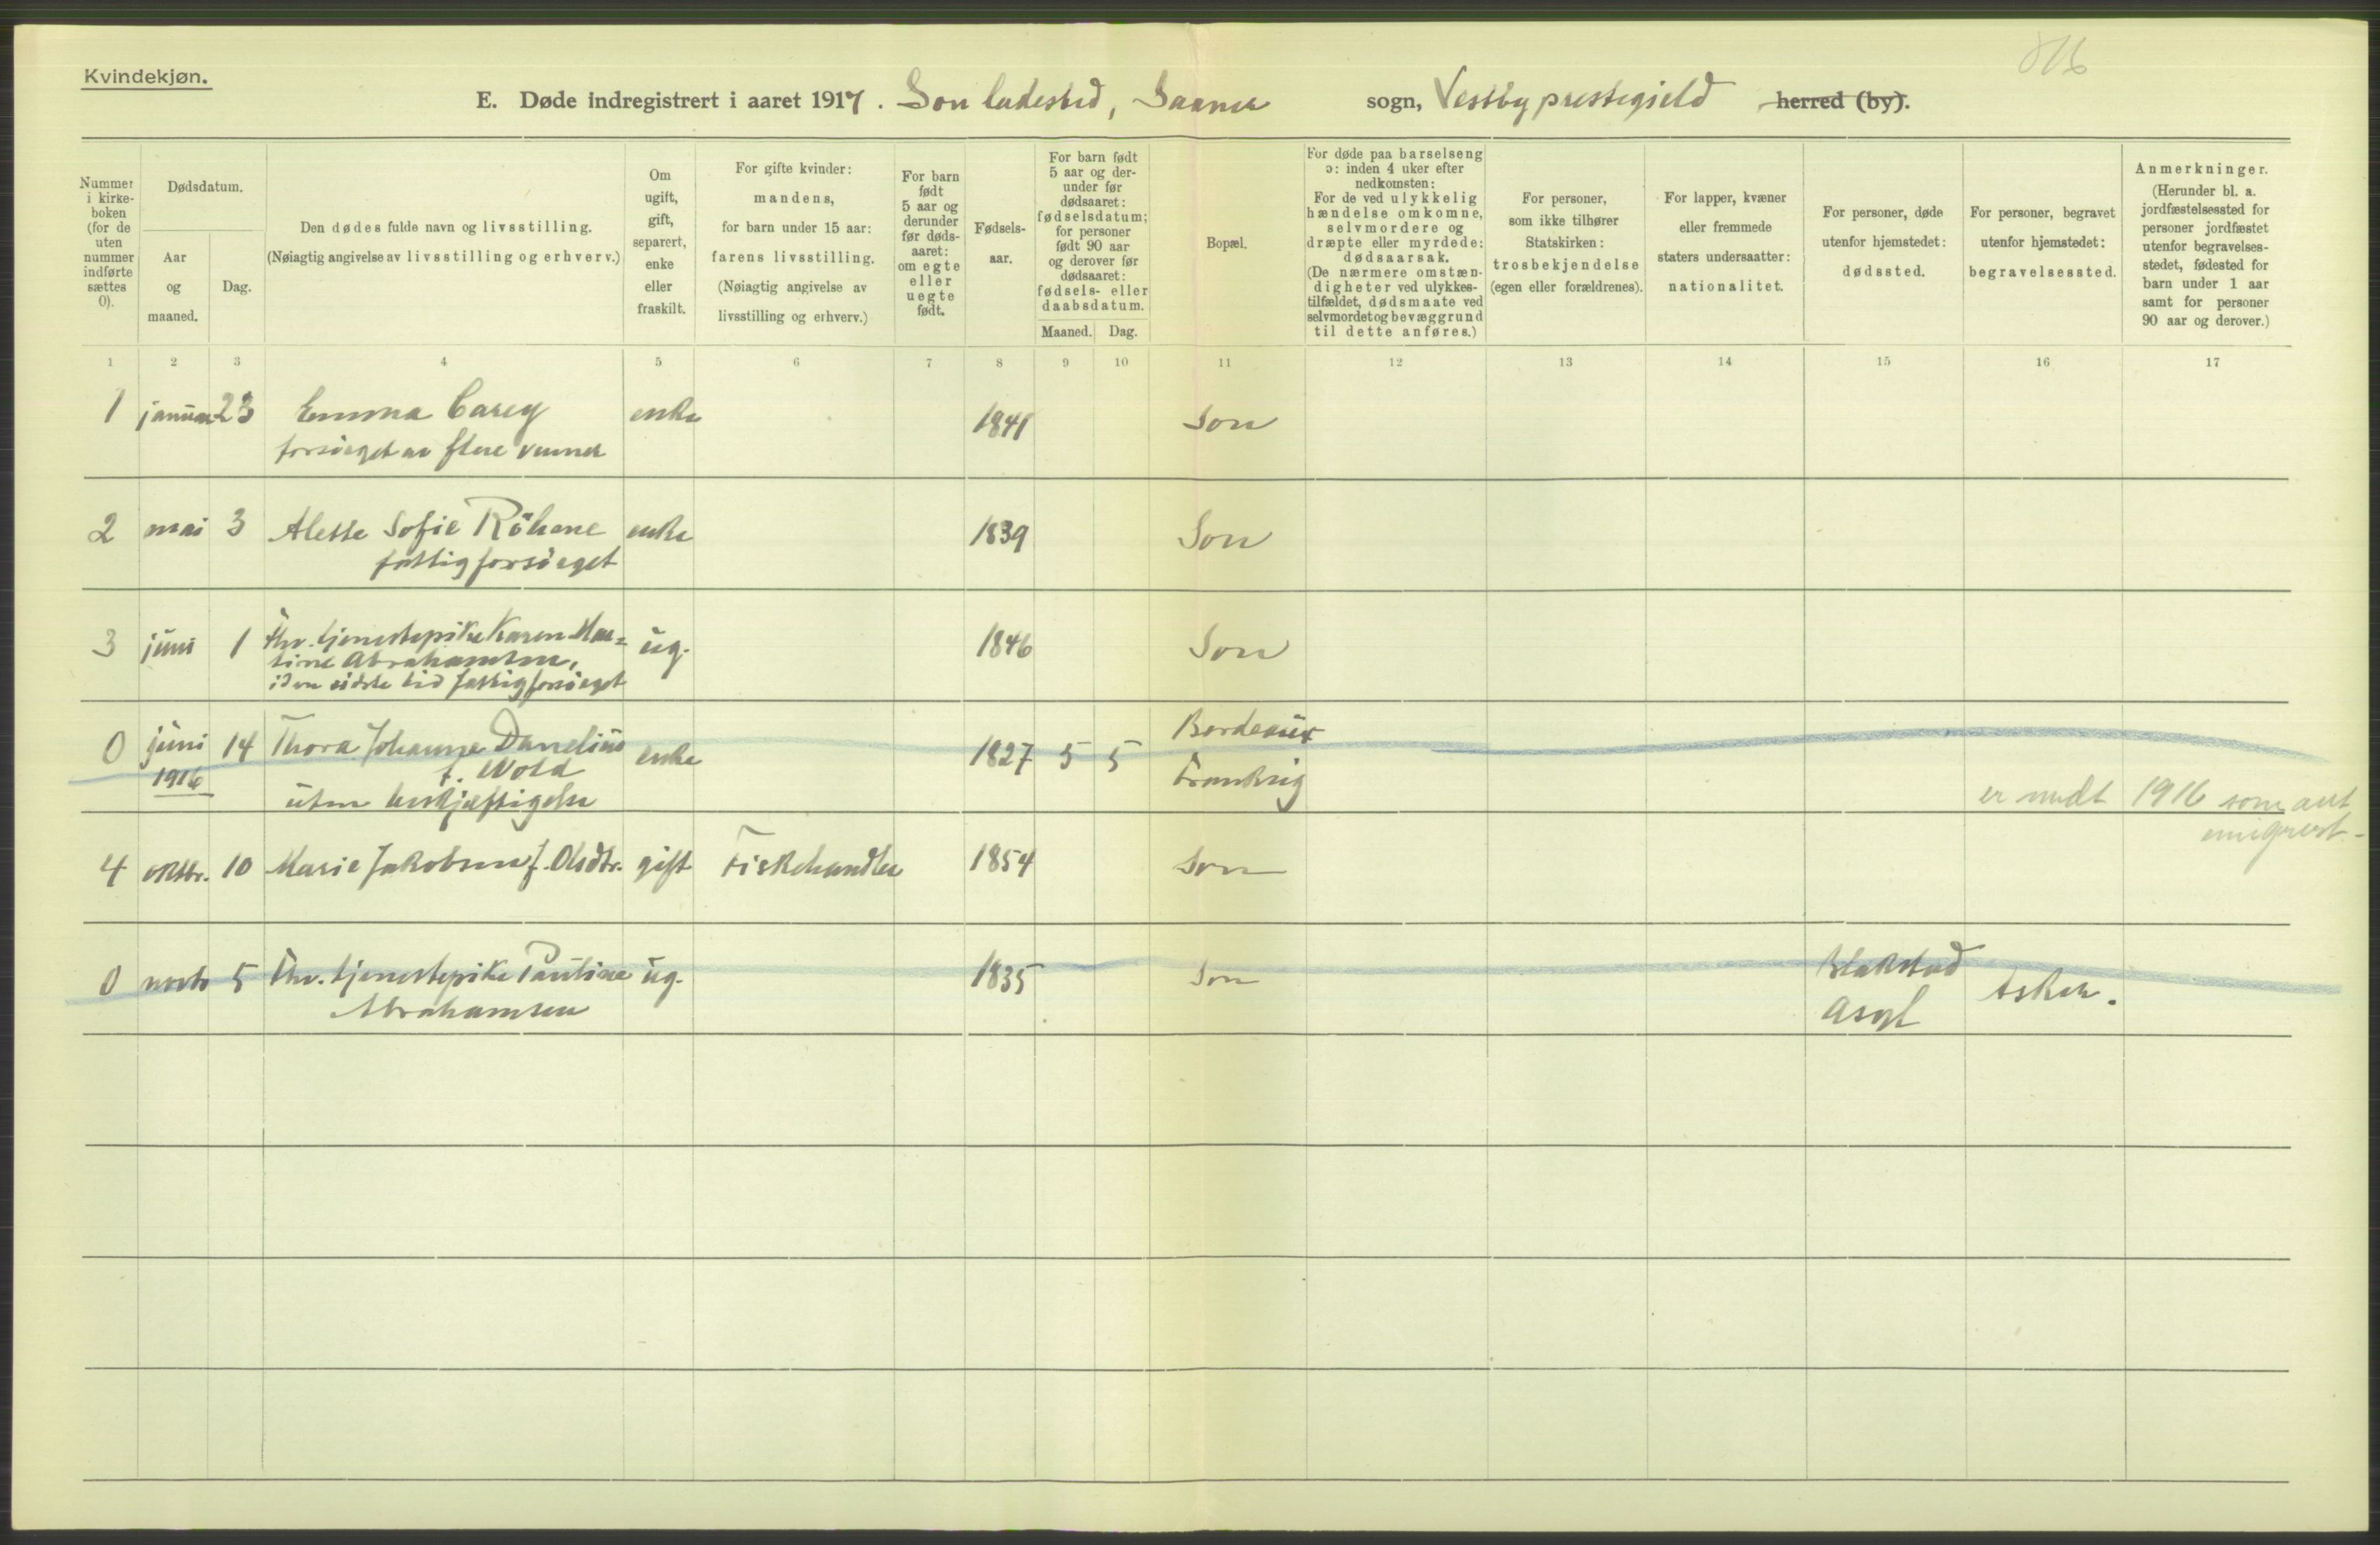 Kvindekjøn.
E. Døde indregistrert i aaret 1917. Son ladested, Saaner sogn, Vestby prestegjeld herred (by).
Nummer i kirke-boken (for de uten nummer indførte sættes 0).
Dødsdatum.
Aar og maaned.
Dag.
Den dødes fulde navn og livsstilling.
(Nøiagtig angivelse av livsstilling og erhverv.)
Om ugift, gift, separert, enke eller fraskilt.
For gifte kvinder:
mandens,
for barn under 15 aar:
farens livsstilling.
(Nøiagtig angivelse av
livsstilling og erhverv.)
For barn født 5 aar og derunder før døds-aaret: om egte eller uegte født.
Fødsels-aar.
For barn født 5 aar og der-under før dødsaaret: fødselsdatum; for personer født 90 aar og derover før dødsaaret: fødsels- eller daabsdatum.
Maaned. Dag.
Bopæl.
For døde paa barselseng
ɔ: inden 4 uker efter
nedkomsten:
For de ved ulykkelig
hændelse omkomne,
selvmordere og
dræpte eller myrdede:
dødsaarsak.
(De nærmere omstæn-
digheter ved ulykkes-
tilfældet, dødsmaate ved
selvmordet og bevæggrund
til dette anføres.)
For personer,
som ikke tilhører
Statskirken:
trosbekjendelse
(egen eller forældrenes).
For lapper, kvæner
eller fremmede
staters undersaatter:
nationalitet.
For personer, døde
utenfor hjemstedet:
dødssted.
For personer, begravet
utenfor hjemstedet:
begravelsessted.
Anmerkninger.
(Herunder bl. a.
jordfæstelsessted for
personer jordfæstet
utenfor begravelses-
stedet, fødested for
barn under 1 aar
samt for personer
90 aar og derover.)
1 2 3 4 5 6 7 8 9 10 11 12 13 14 15 16 17
1 januar 23 Emma Carey enke 1841 Son
forsørget av flere venner
2 mai 3 Alette Sofie enke 1839 Son
fattigforsørget
3 juni 1 Fhv. tjenestepike Karen Mar= ug. 1846 Son
tine Abrahamsen,
i den sidste tid fattigforsørget
0 juni 14 Thora Johanne Danelius enke 1827 5 5 Bordeaux
1916 f. Wold Frankrig
uten beskjæftigelse
er medt 1916 som
4 oktbr. 10 Marie Jakobsen f. Olsdtr. gift Fiskehandler 1854 Son
0 novbr 5 Fhv. tjenestepike Pauline ug. 1835 Son Blakstad Asker.
Abrahamsen Asyl